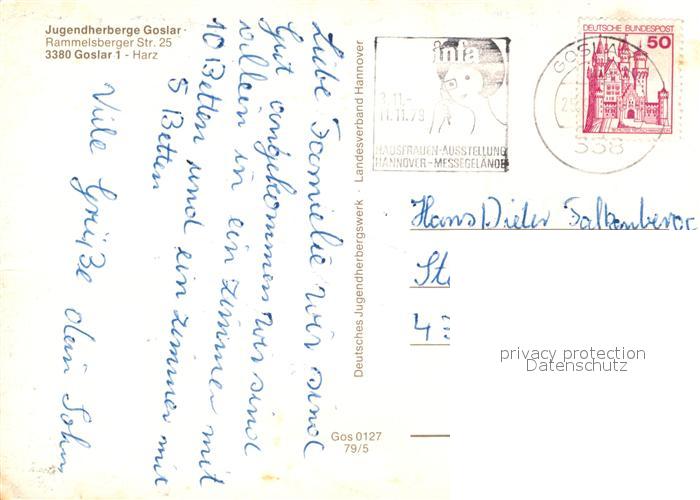 Jugendherberge Goslar ·
Rammelsberger Str. 25
3380 Goslar 1 - Harz
Liebe Familie wir sind
Gut angekommen wir sind
allein in ein zimmer mit
10 Betten und ein zimmer mit
5 Betten
Viele Grüße dein Sohn
Deutsches Jugendherbergswerk · Landesverband Hannover
Gos 0127
79/5
infa
11.11.79
HAUSFRAUEN-AUSSTELLUNG
HANNOVER-MESSEGELÄNDE
GOSLAR
338
DEUTSCHE BUNDESPOST
50
Hans Dieter
St
4
privacy protection
Datenschutz